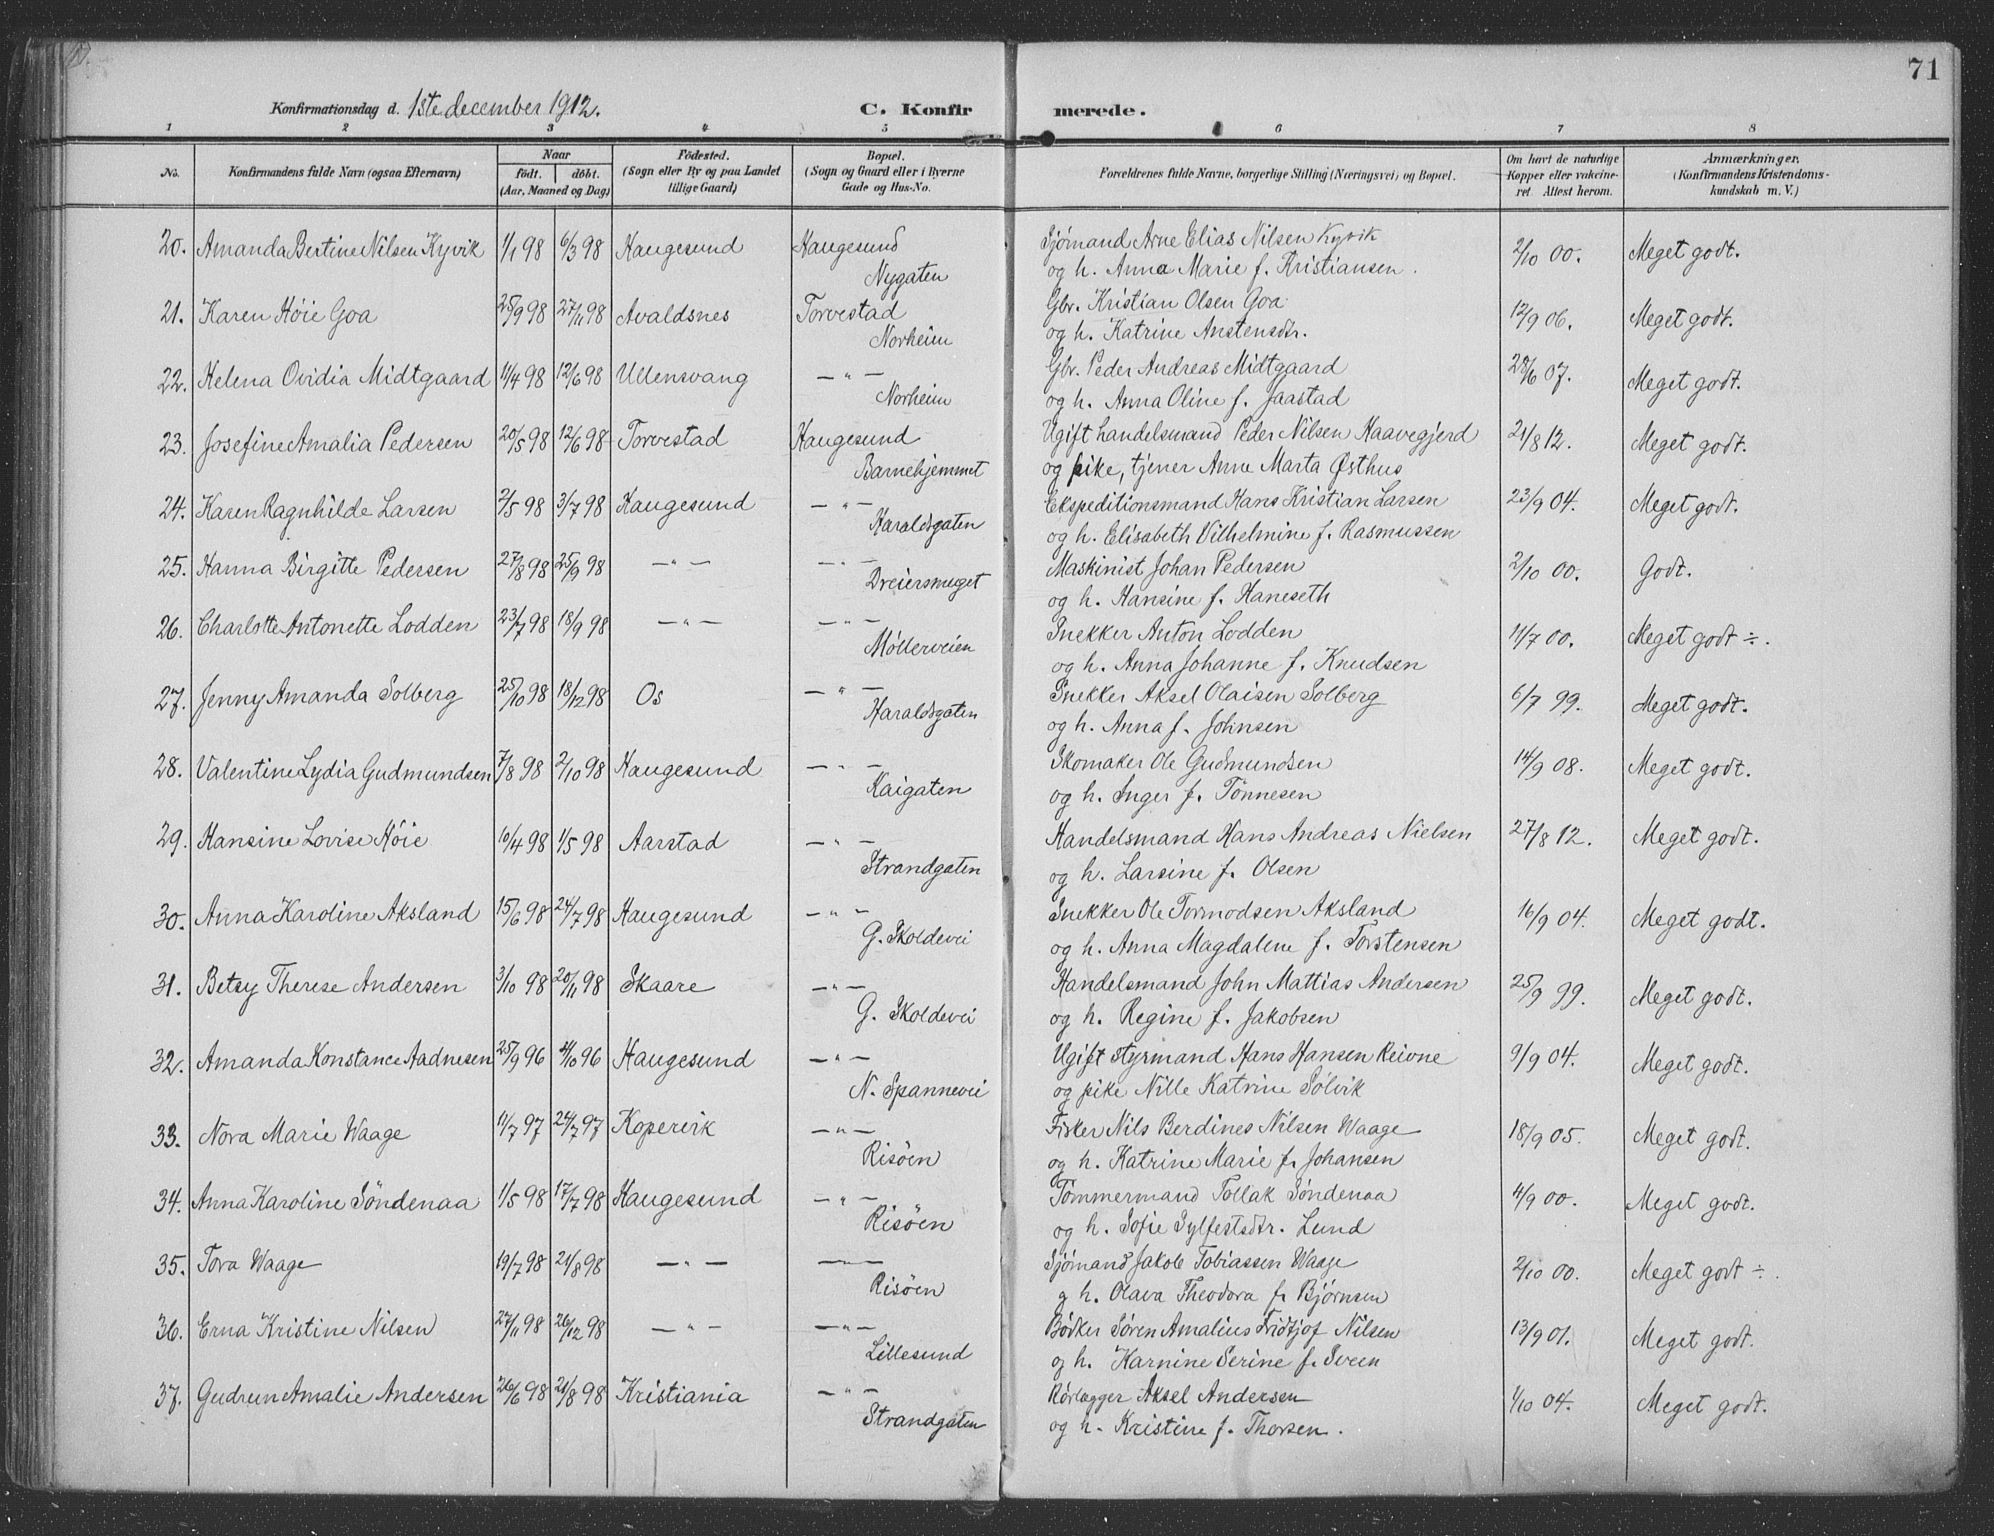 71
Konfirmationsdag d. 1ste december 1912. C. Konfirmerede.
1 2 3 4 5 6 7 8
No. Konfirmandens fulde Navn (ogsaa Efternavn) Naar født. døbt. (Aar, Maaned og Dag) Födested. (Sogn eller By og paa Landet tillige Gaard) Bopæl. (Sogn og Gaard eller i Byerne Gade og Hus-No. Forældrenes fulde Navne, borgerlige Stilling (Næringsvei) og Bopæl. Om havt de naturlige Kopper eller vakcineret Attest herom. Anmærkninger. (Konfirmandens Kristendomskundskab m. V.)
20. Amanda Bertine Nilsen Kyvik 1/1 98 6/3 98 Haugesund Haugesund Sjømand Arne Elias Nilsen Kyvik 2/10 00. Meget godt.
Nygaten og h. Anna Marie f. Kristiansen.
21. Karen Høie Goa 25/9 98 27/11 98 Avaldsnes Torvestad Gbr. Kristian Olsen Goa 12/9 06. Meget godt.
Norheim og h. Katrine Anstensdtr.
22. Helena Ovidia Midtgaard 11/4 98 12/6 98 Ullensvang — " — Gbr. Peder Andreas Midtgaard 28/6 07. Meget godt.
Norheim og h. Anna Oline f. Jaastad
23. Josefine Amalia Pedersen 20/5 98 12/6 98 Torvestad Haugesund Ugift handelsmand Peder Nilsen Haavegjerd 21/8 12. Meget godt.
Barnehjemmet og pike, tjener Anne Marta Østhus
24. Karen Ragnhilde Larsen 2/5 98 3/7 98 Haugesund — " — Ekspeditionsmand Hans Kristian Larsen 23/9 04. Meget godt.
Haraldsgaten og h. Elisabeth Vilhelmine f. Rasmussen
25. Hanna Birgitte Pedersen 27/8 98 25/9 98 — " — — " — Maskinist Johan Pedersen 2/10 00. Godt.
Dreiersmeget og h. Hansine f. Haneseth
26. Charlotte Antonette Lodden 23/7 98 18/9 98 — " — — " — Snekker Anton Lodden 11/7 00. Meget godt ÷.
Møllerveien og h. Anna Johanne f. Knudsen
27. Jenny Amanda Solberg 25/10 98 18/12 98 Os — " — Snekker Aksel Olaisen Solberg 6/7 99. Meget godt.
Haraldsgaten og h. Anna f. Johnsen
28. Valentine Lydia Gudmundsen 7/8 98 2/10 98 Haugesund — " — Skomaker Ole Gudmundsen 14/9 08. Meget godt.
Kaigaten og h. Inger f. Tönnesen
29. Hansine Lovise Høie 10/4 98 1/5 98 Aarstad — " — Handelsmand Hans Andreas Nielsen 27/8 12. Meget godt.
Strandgaten og h. Larsine f. Olsen
30. Anna Karoline Aksland 15/6 98 24/7 98 Haugesund — " — Snekker Ole Tormodsen Aksland 16/9 04. Meget godt.
G. Skoldevei og h. Anna Magdalene f. Torstensen
31. Betsy Therese Andersen 3/10 98 20/11 98 Skaare — " — Handelsmand John Mattias Andersen 25/9 99. Meget godt.
G. Skoldevei og h. Regine f. Jakobsen
32. Amanda Konstance Aadnesen 25/9 96 4/10 96 Haugesund — " — Ugift styrmand Hans Hansen Reivne 9/9 04. Meget godt.
N. Spannevei og pike Nille Katrine Sølvik
33. Nora Marie Waage 11/7 97 24/7 97 Kopervik — " — Fisker Nils Berdines Nilsen Waage 18/9 05. Meget godt.
Risøen og h. Katrine Marie f. Johansen
34. Anna Karoline Søndenaa 1/5 98 17/7 98 Haugesund — " — Tømmermand Tollak Søndenaa 4/9 00. Meget godt.
Risøen og h. Sofie Sylfestsdtr. Lund
35. Tora Waage 19/7 98 21/8 98 — " — — " — Sjømand Jakob Tobiassen Waage 2/10 00. Meget godt ÷.
Risøen g h. Olava Theodora f. Bjørnsen
36. Erna Kristine Nilsen 27/11 98 26/12 98 — " — — " — Bødker Søren Amalius Fridtjof Nilsen 13/9 01. Meget godt.
Lillesund og h. Karnine Serine f. Sveen
37. Gudrun Amalie Andersen 26/6 98 21/8 98 Kristiania — " — Rørlægger Aksel Andersen 1/10 04. Meget godt.
Strandgaten og h. Kristine f. Thorsen.